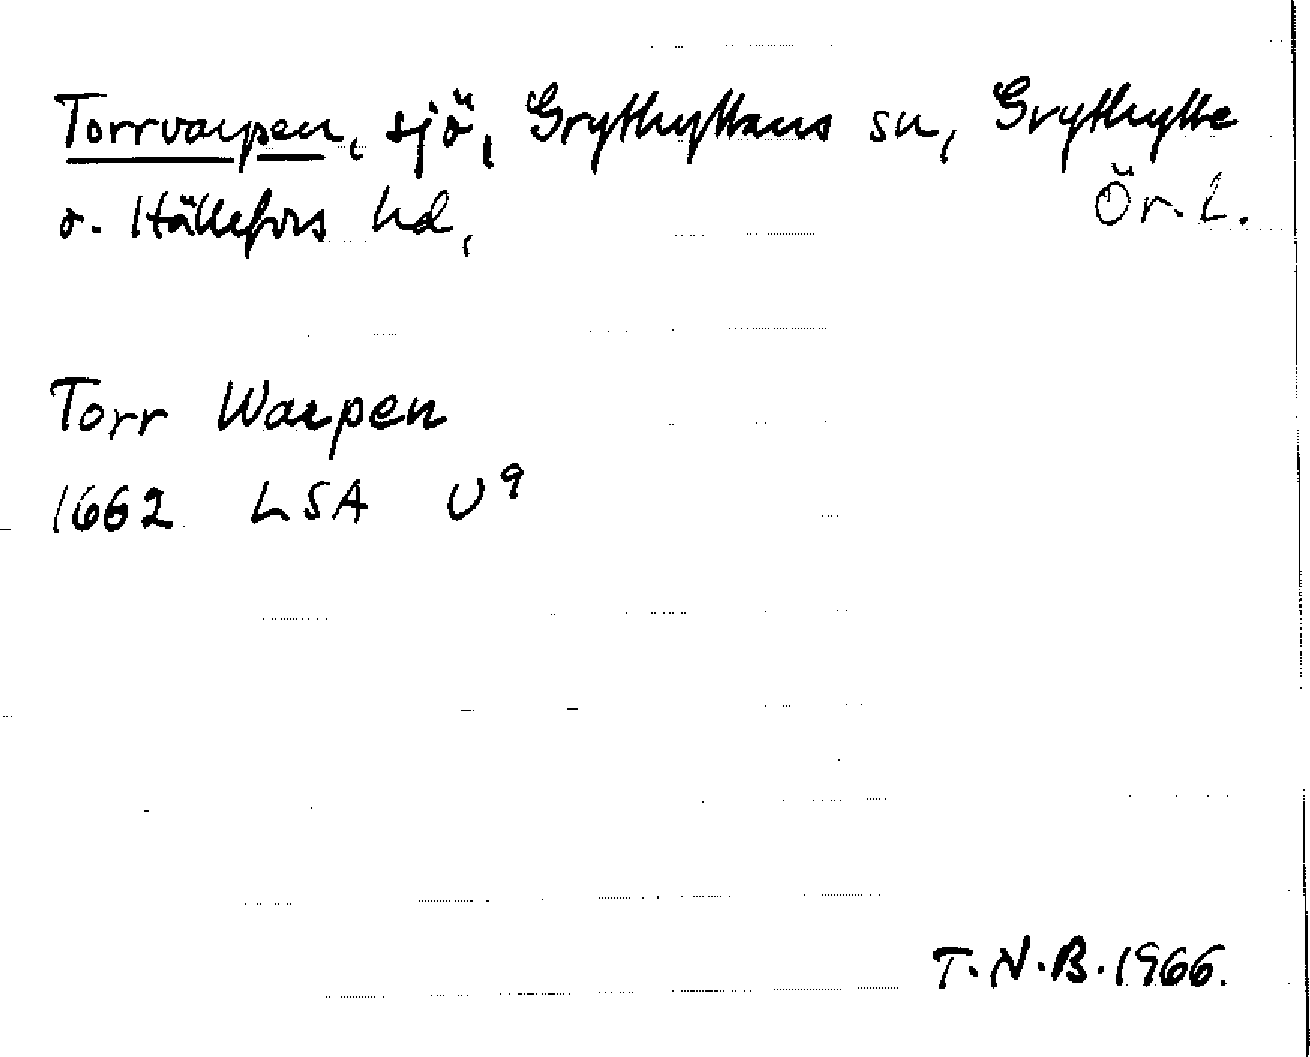 Torrvarpen, sjö, Grythyttans sn, Grythytte
o. Hällefors hd,
Ör. L.
Torr Warpen
1662 LSA U9
T.N.B. 1966.